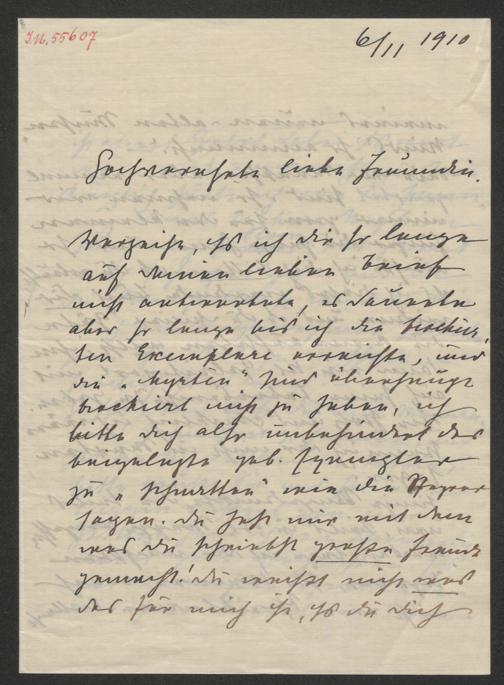 I.N. 55607
6/11 1910
Hochverehrte liebe Freundin.
Verzeihe, dß ich dir so lange
auf deinen lieben Brief
nicht antwortete, es dauerte
aber so lange bis ich die brochir-
ten Exemplare erreichte, und
die "Myrten" sind überhaupt
brochiert nicht zu haben, ich
bitte dich also unbehindert das
beigelegte geb. Exemplar
zu " " wie die
sagen. Du hast mir mit dem
was du schriebst große Freude
gemacht! Du weißt nicht was
das für mich ist, dß du dich